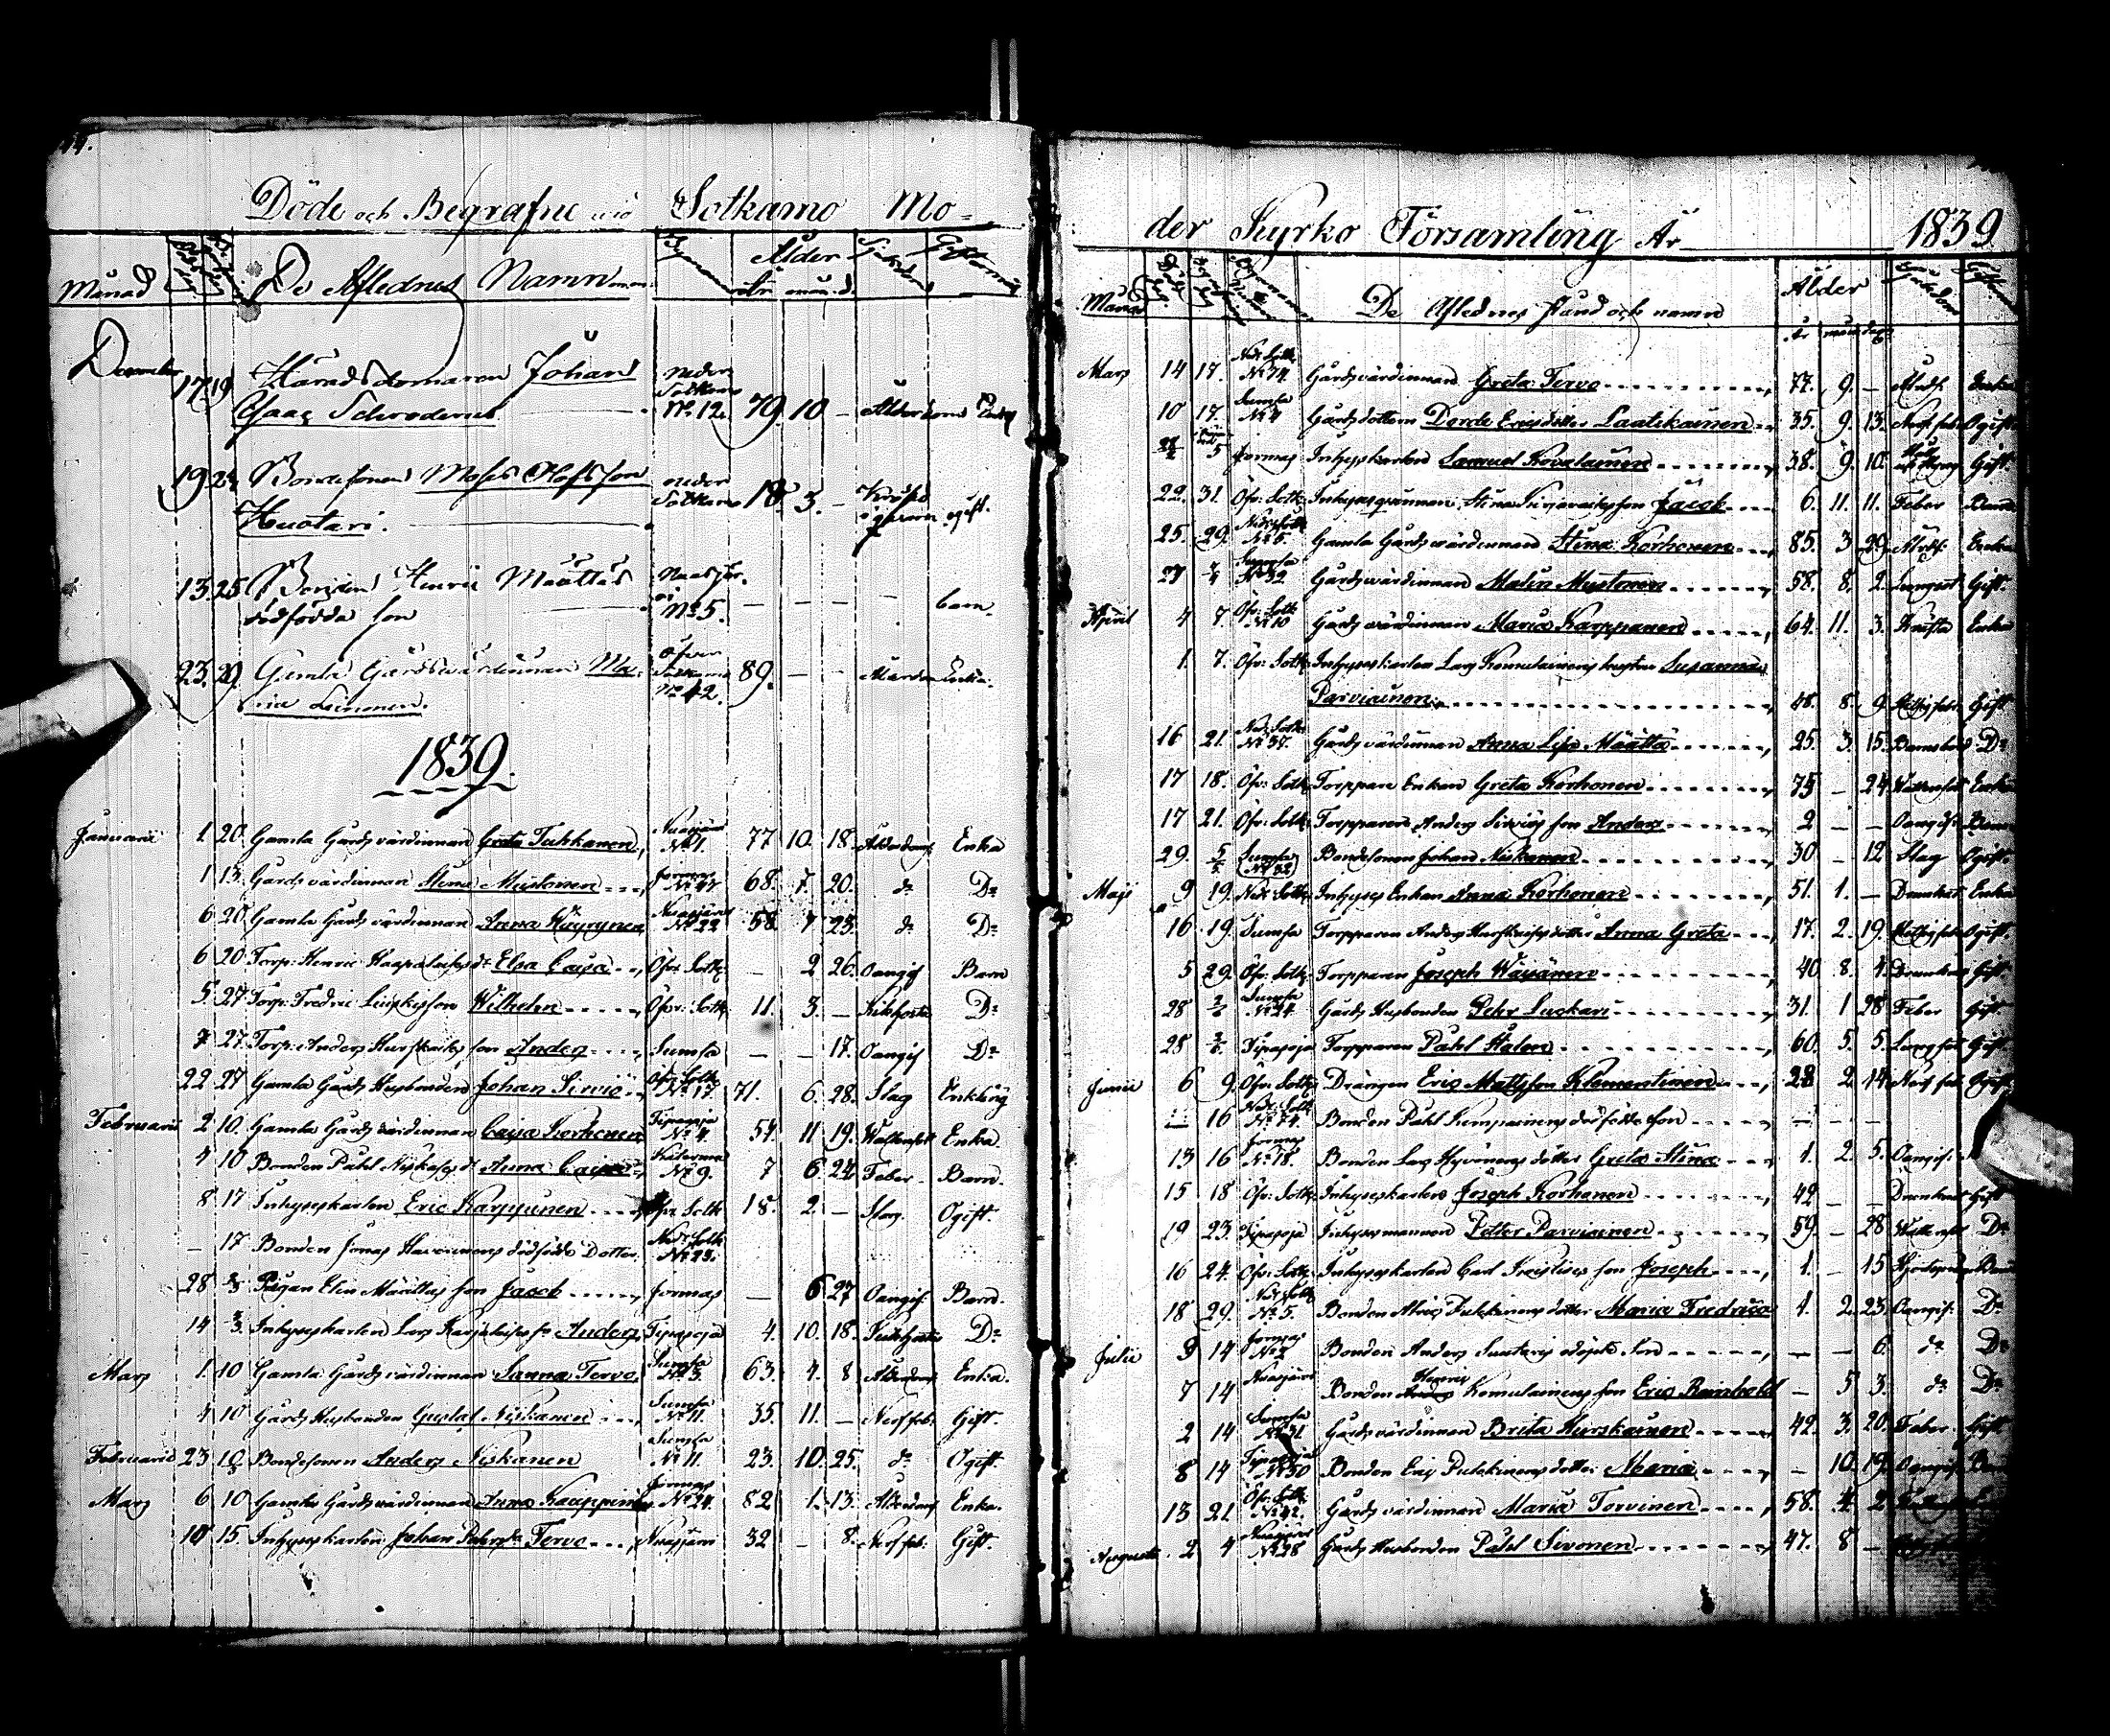 Döde och Begrafne wid Sotkamo Mo-
Månad De Aflednes Namn Ålder
År mån. d.
December 17 19 Häradsdomaren Johan Neder Sotkamo No 12. 79. 10 - Ålderdom
Isaac Schroderus
19 24 Bondesonen Moses Olofsson Neder Sotkamo 18. 3. - ogift.
Huotari.
13 25 Bonden Henric Määttäs No 5. - - - - barn.
dödfödda son
23. 29. Gamla Gårdsvärdinnan Ma- Öfver Sotkamo No 42. 89. - - Ålderdom Enka.
ria Leinonen.
1839.
Januarii 1 20 Gamla Gårds värdinnan Greta Tuhkanen, Nuasjärvi No 1. 77 10. 18. Ålderdoms Enka
1 13. Gårds värdinnan Stina Mustonen Jormas 68. 7. 20. do Do
6 20 Gamla Gårds värdinnan Anna Käyrynen Nuasjärvi No 22 58. 7 23. do Do
6 20 Torp: Henric dr Elsa Caisa Öfv: Sotk: - 2 26. Oangif Barn
5 27 Torp: Fredric son Wilhelm Öfv: Sotk: 11. 3. - Kikhosta Do
7 27 Torp: Anders Hurskais son Anders Sumsa - - 17. Oangif Do
22 27 Gamla Gårds Husbonden Johan Sirviö Öfv: Sotk: No 17. 71. 6 28. Slag Enkling
Februarii 2 10. Gamla Gårds värdinnan Caisa Korhonen Tipasoja No 4. 54. 11 19. Wattensot Enka.
4 10 Bonden Påhl dr Anna Caisa No 9. 7 6. 24. Feber Barn.
8 17 Inhyseskarlen Eric Karppinen Öfv: Sotk 18. 2. - Slag. Ogift.
- 17 Bonden Jonas Havuinens dödfödde Dotter. Ned: Sotk No 23.
28 3/3 Pigan Elin Määttäs son Jacob Jormas - 6 27 Oangif: Barn.
14 3/3. Inhyseskarlen Lars son Anders Tipasoja 4. 10. 18. Kikhosta Do
Mars 1. 10 Gamla Gårds värdinnan Sanna Tervo. Sumsa No 3. 63. 4. 8 Ålderdoms Enka.
4 10 Gårds Husbonden Gustaf Niskanen Sumsa No 11. 35. 11. - Nerffeb. Gift.
Februarii 23 10/3 Bondesonen Anders Niskanen Sumsa No 11. 23. 10. 25. do Ogift.
Mars 6 10 Gamla Gårds värdinnan Anna Kauppinen Jormas No 24. 82 1. 13. Ålderdoms Enka.
10 15. Inhyseskarlen Johan Tervo Nuasjärvi 32 - 8. Nerffeb. Gift.
der Kyrko Församling År 1839
Månad De Aflednes stånd och namn Ålder
År mån dag
Mars 14 17. Ned: Sotk: No 74. Gårds värdinnan Greta Tervo 77. 9. - Enka
10 17. Sumsa Gårds dottern Dorde Ericsdotter Laatikainen 35. 9. 13. Nerf feb Ogift.
5 Jormas Inhyseskarlen Samuel Kovalainen 38. 9. 10. Gift.
22. 31. Öfv: Sotk: Inhyseskvinnan Stina son Jacob 6. 11. 11. Feber Barn
25. 29. Ned: Sotk: No 5. Gamla Gårds värdinnan Stina Korhonen 85. 3 29. Enka
27 7/4 Sumsa No 32 Gårds värdinnan Malin Mustonen 58. 8. 2. Lungsot Gift.
April 4 7. Öfv: Sotk No 10 Gårds värdinnan Maria Karppanen 64. 11. 3. Enka
1. 7. Öfv: Sotk: Inhyseskarlen Lars Komulainens hustru Susanna
Parviainen 48. 8. 9. Gift
16 21. Ned: Sotk No 37. Gårds värdinnan Anna Lisa Määttä 25. 3. 15. Barnsbörd Do
17 18. Öfv: Sotk: Torppare Enkan Greta Korhonen 75 - 24 Wattensot Enka
17 21. Öfv: Sotk: Torpparen Anders Sirviös son Anders 2 - - Oangif: Barn
29. 5/5 Sumsa No 32 Bondesonen Johan Niskanen 30 - 12 Slag Ogift.
Maji 9 19. Ned: Sotk: Inhyses Enkan Anna Korhonen 51. 1. - Drunknat Enka
16. 19. Sumsa Torpparen Anders Hurskais dotter Anna Greta 17. 2. 19. Ogift.
5 29. Öfv: Sotk: Torpparen Joseph Wäyänen 40 8. 4. Drunknat Gift
28 2/6 Sumsa No 24. Gårds Husbonden Pehr Luckari 31. 1 28 Feber Gift.
28. 2/6. Tipasoja Torpparen Påhl Halon 60. 5. 5. Gift
Junii 6 9. Öfv: Sotk: Drängen Eric Mattsson Klementinen 28 2. 14. Nerf feb. Ogift.
- 16 Ned: Sotk No 74. Bonden Påhl dödfödde son - - -
13 16 Jormas No 18. Bonden Lars Hyvönens dotter Greta Stina 1. 2. 5. Oangif:
15 18 Öfv: Sotk: Inhyseskarlen Joseph Korhonen 42 - - Drunknat Gift
19 23. Tipasoja Inhysesmannen Petter Parviainen 59. - 28 Wattensot Do
16 24. Öfv: Sotk: Inhyseskarlen Carl son Joseph 1. - 15 Barn
18 29. Ned: Sotk No 5. Bonden Pulkkinens dotter Maria Fredrica 1. 2. 23. Oangif: Do
Julii 9 14 Jormas Bonden Anders odöpte son - - 6. do Do
7 14 Nuasjärvi Bonden Henric Komulainens son Eric Reinhold - 5 3. do Do
2 14 Sumsa No 31 Gårds värdinnan Brita Hurskainen 42. 3. 20. Feber. Gift
8 14 Tipasoja No 30 Bonden Eric Pulkkinens dotter Maria - 10. 19. Oangif Barn
13 21 Öfv: Sotk: No 42. Gårds värdinnan Maria Torvinen 58. 4 2.
Augusti. 2 4 Nuasjärvi No 28 Gårds Husbonden Påhl Sivonen 47. 8 -